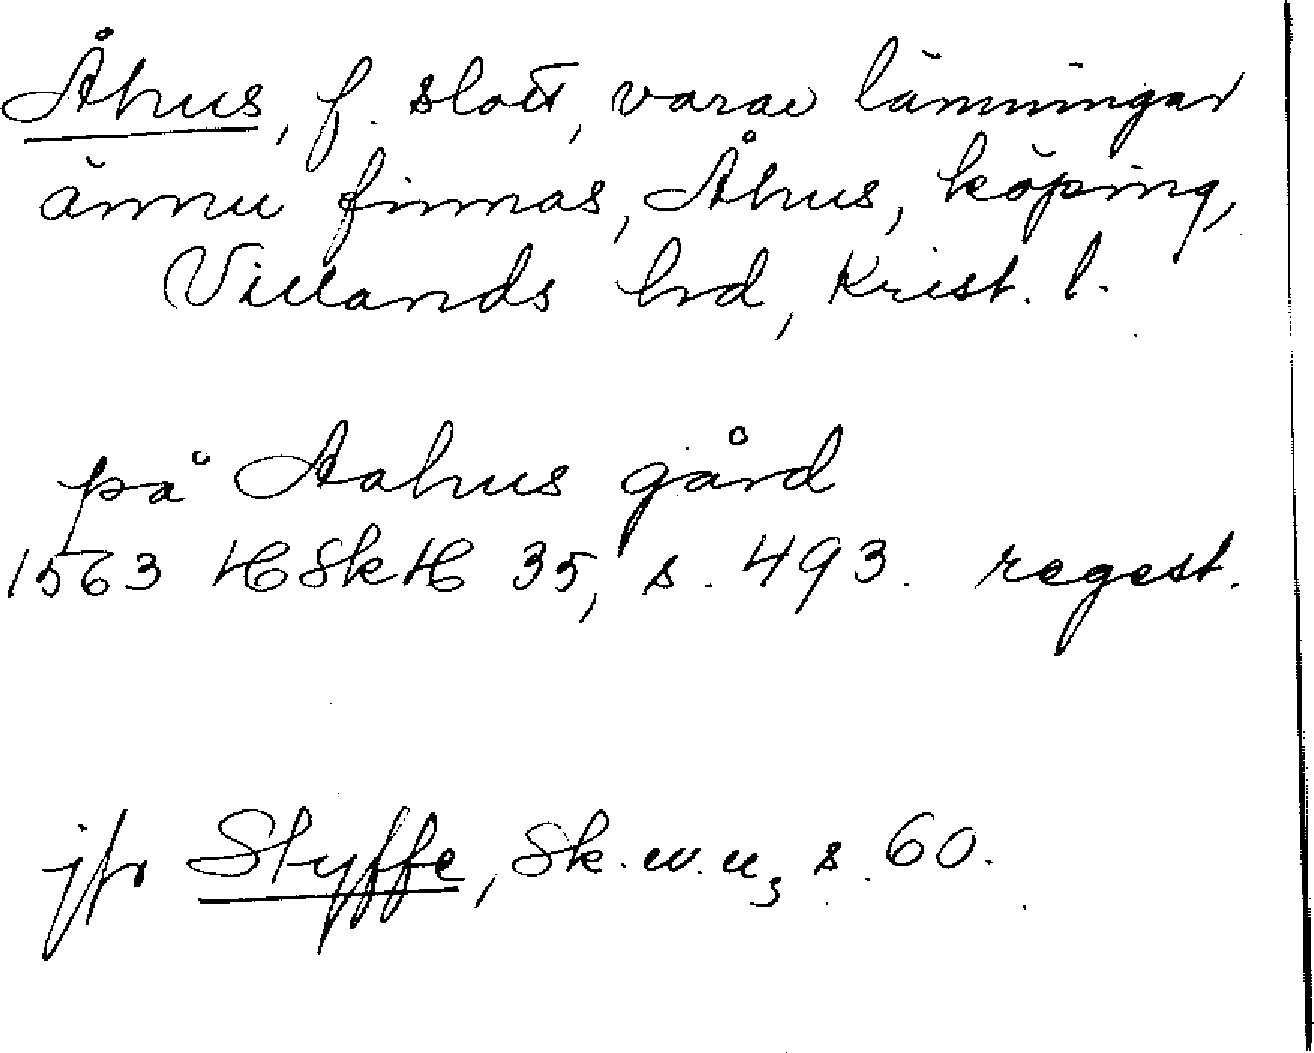 Åhus, f. slott, varav lämningar
ännu finnas, Åhus, köping,
Villands hrd, Krist. l.
på Aahus gård
1563 HSkH 35, s. 493. regest.
jfr Styffe, Sk.u.u, s. 60.